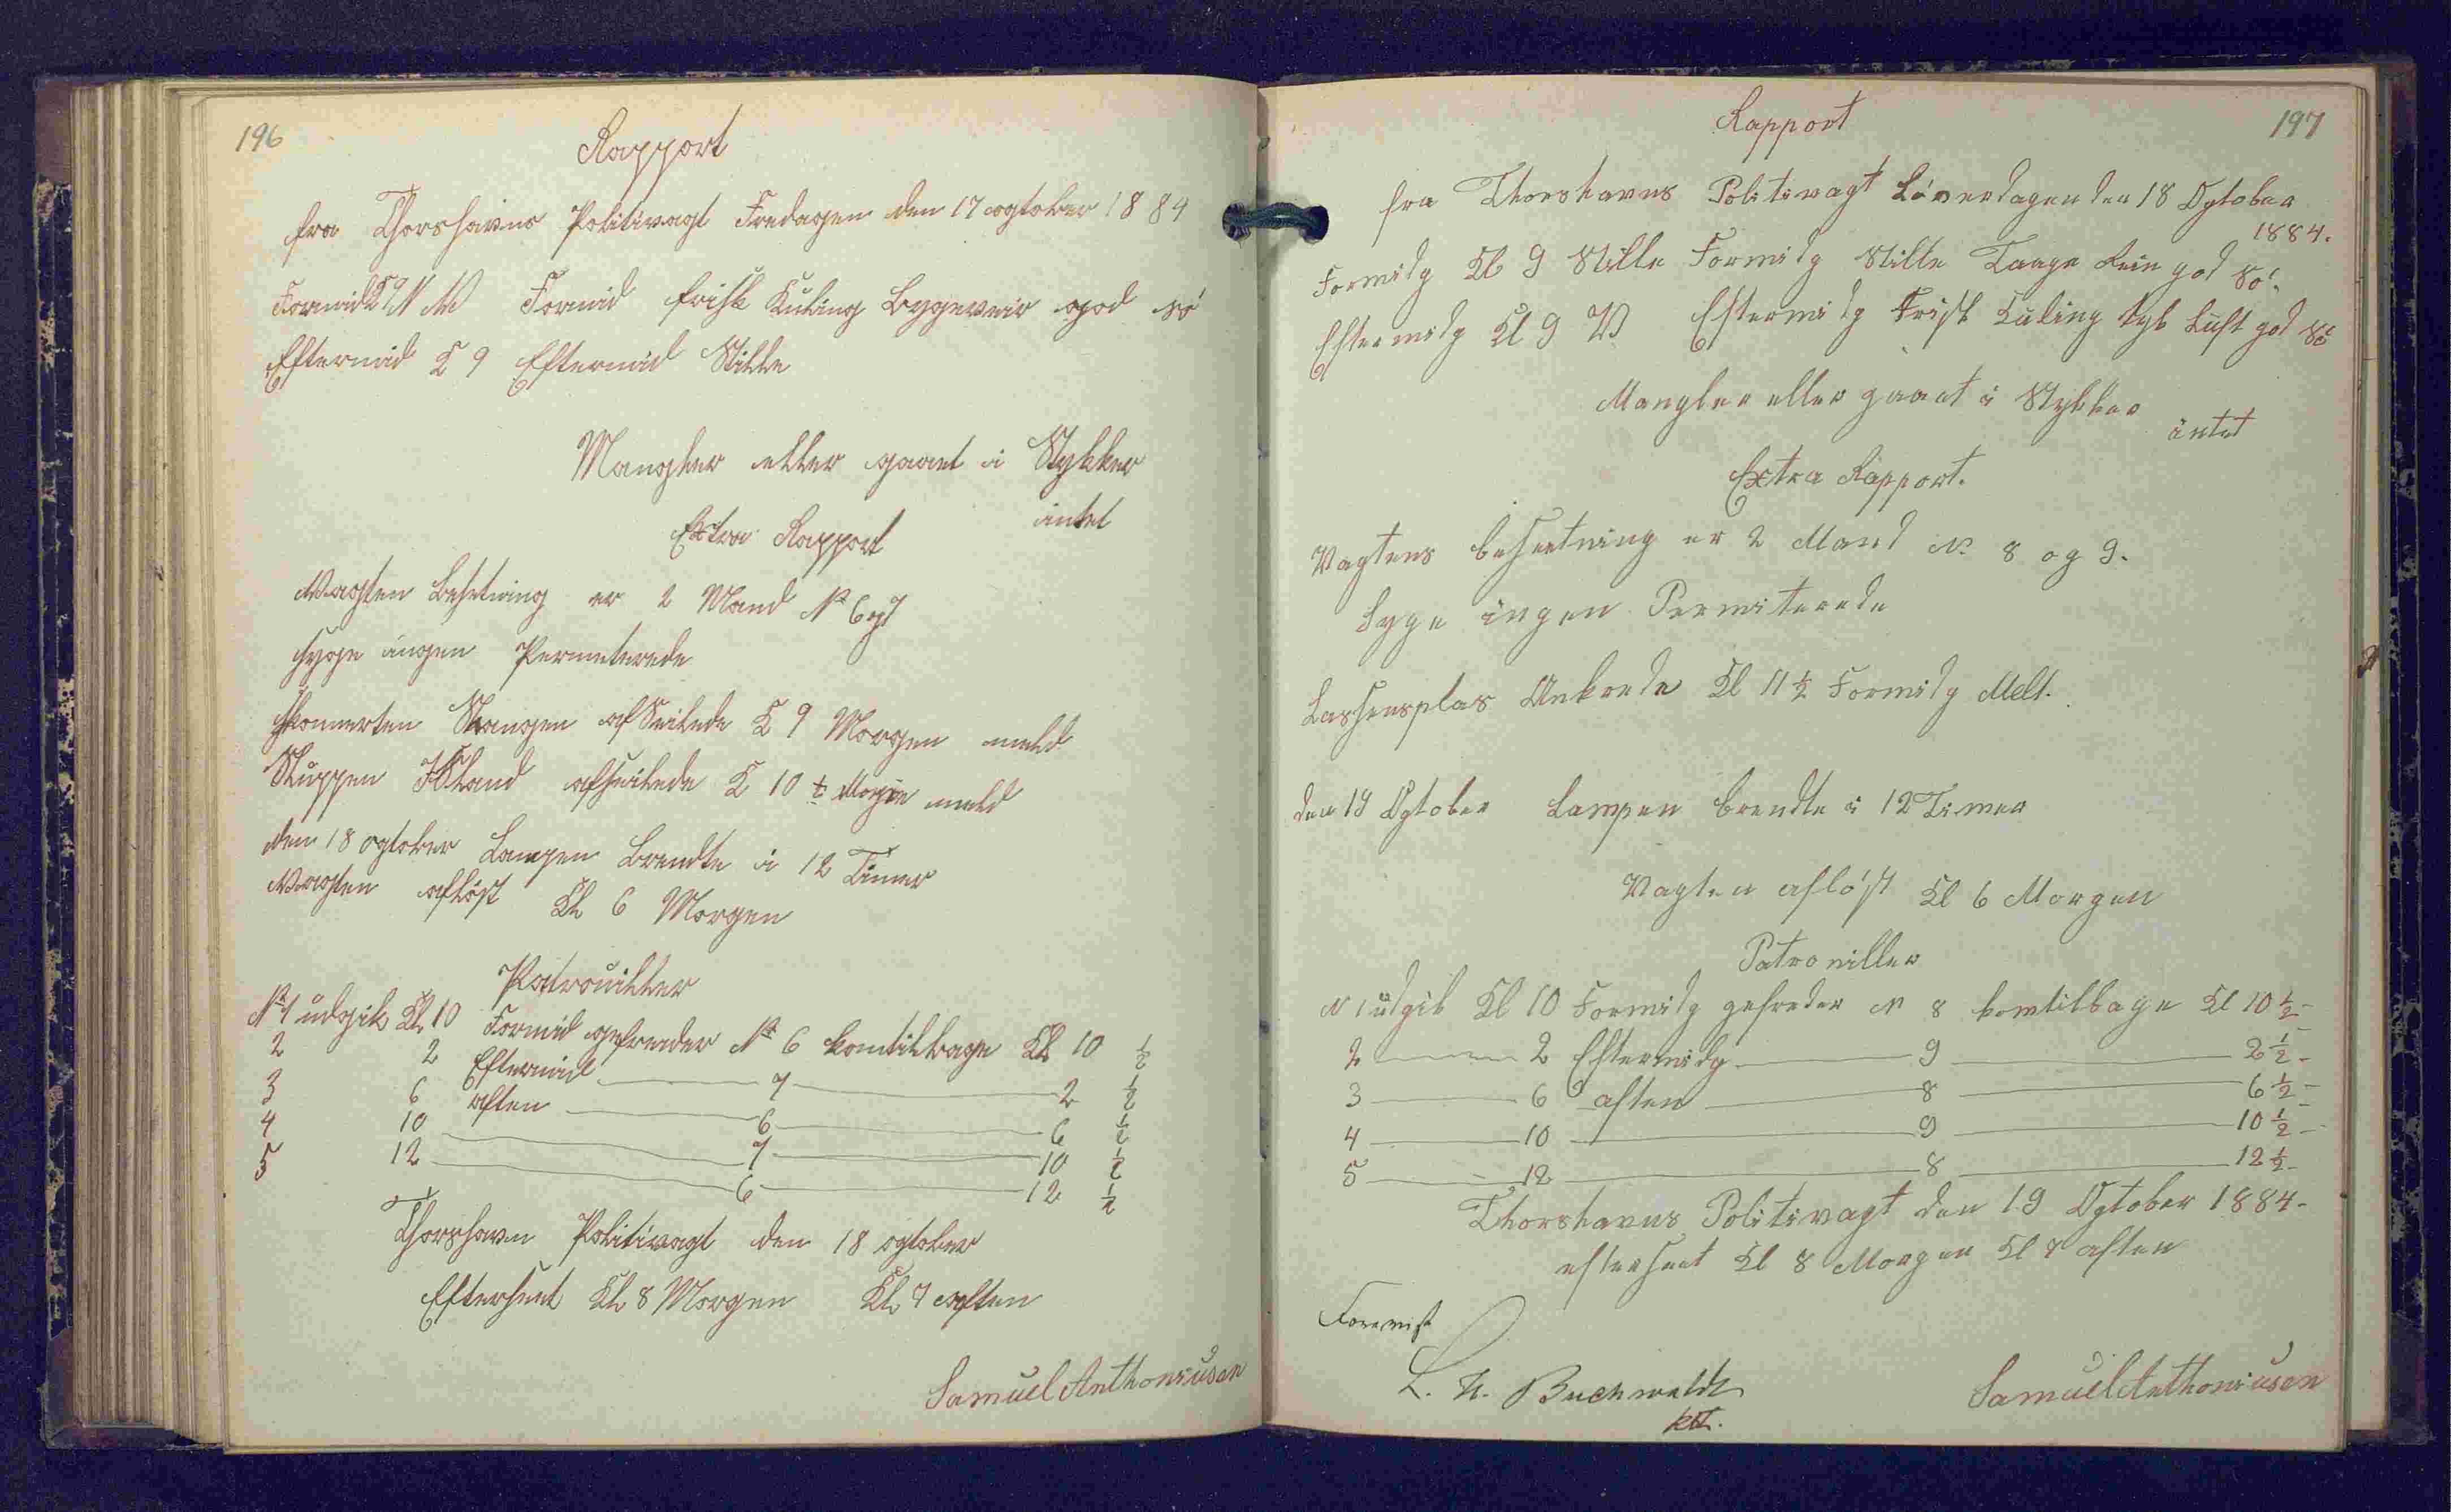 196
Rapport
fra Thorshavns Politivagt Fredagen den 17 ogtober 1884
Formid K 9 N W Formid frisk Kuling Bygeveir god sö
Eftermid K 9 Eftermid Stille
Mangler eller gaaet i Stykker
intet
Extra Rapport
Vagten Besetning er 2 Mand No 6 og 7
syge ingen Permeterede
Skonnerten Stangen afseilede K 9 Morgen meld
Sluppen Island afseilede K 10 ½ Morgen meld
den 18 ogtober Lampen Brendte i 12 Timer
Vagten aflöst Kl 6 Morgen
Patrouiller
No 1 udgik Kl 10 Formid gefreider No 6 komtilbage Kl 10 ½
2 2 Eftermid 7 2 ½
3 6 aften 6 6 ½
4 10 7 10 ½
5 12 6 12 ½
Thorshavn Politivagt den 18 ogtober
Efterseet Kl 8 Morgen Kl 7 aften
Samuel Anthoniusen
197
Rapport
fra Thorshavns Politivagt Löverdagen den 18 Ogtober
1884.
Formidg Kl 9 Stille Formidg Stille Taage Rein god Sö.
Eftermidg Kl 9 W Eftermidg Frisk Kuling Tyk Luft god Sö
Mangler eller gaaet i Stykker
intet
Extra Rapport.
Vagtens besettning er 2 Mand No 8 og 9.
Syge ingen Permiterede
Ankrede Kl 11 ½ Formidg Melt.
den 19 Ogtober Lampen brendte i 12 Timer
Vagten aflöst Kl 6 Morgen
Patroniller
N 1 udgik Kl 10 Formidg gefreder N 8 komtilbage Kl 10 ½
2 2 Eftermidg 9 2 ½
3 6 aften 8 6 ½
4 10 9 10 ½
5 12 8 12 ½
Thorshavns Politivagt den 19 Ogtober 1884.
efterseet Kl 8 Morgen Kl 7 aften
Forevist
Buchwaldt
kst.
Samuel Anthoniusen